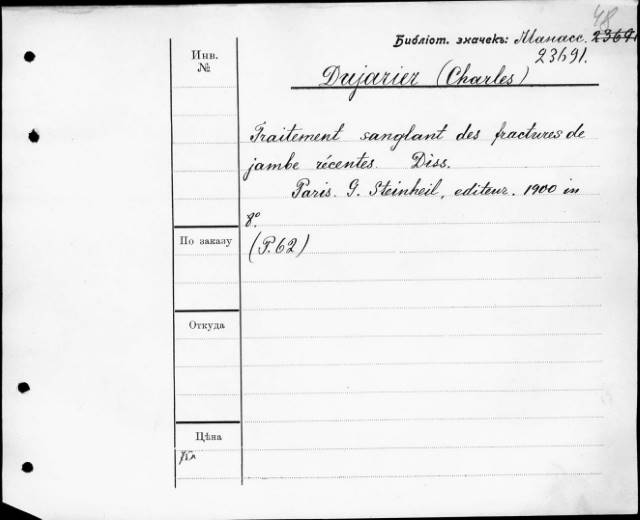 48
Библіот. значекъ: Манасс. 23691
23691.
Инв.
№
Dujarier (Charles)
Traitement sanglant des fractures de
jambe récentes. Diss.
Paris. G. Steinheil, editeur. 1900 in
8°.
По заказу
(P. 62)
Откуда
Цѣна